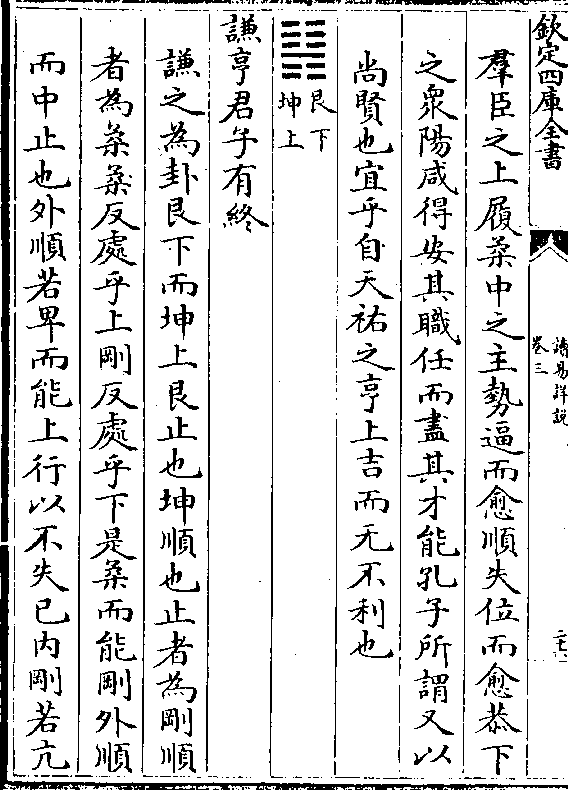 欽定四庫全書
讀易詳說
卷三
羣臣之上履柔中之主勢逼而愈順失位而愈恭下
之衆陽咸得安其職任而盡其才能孔子所謂又以
尚賢也宜乎自天祐之亨上吉而无不利也
艮下
坤上
謙亨君子有終
謙之為卦艮下而坤上艮止也坤順也止者為剛順
者為柔柔反處乎上剛反處乎下是柔而能剛外順
而中止也外順若卑而能上行以不失已内剛若亢